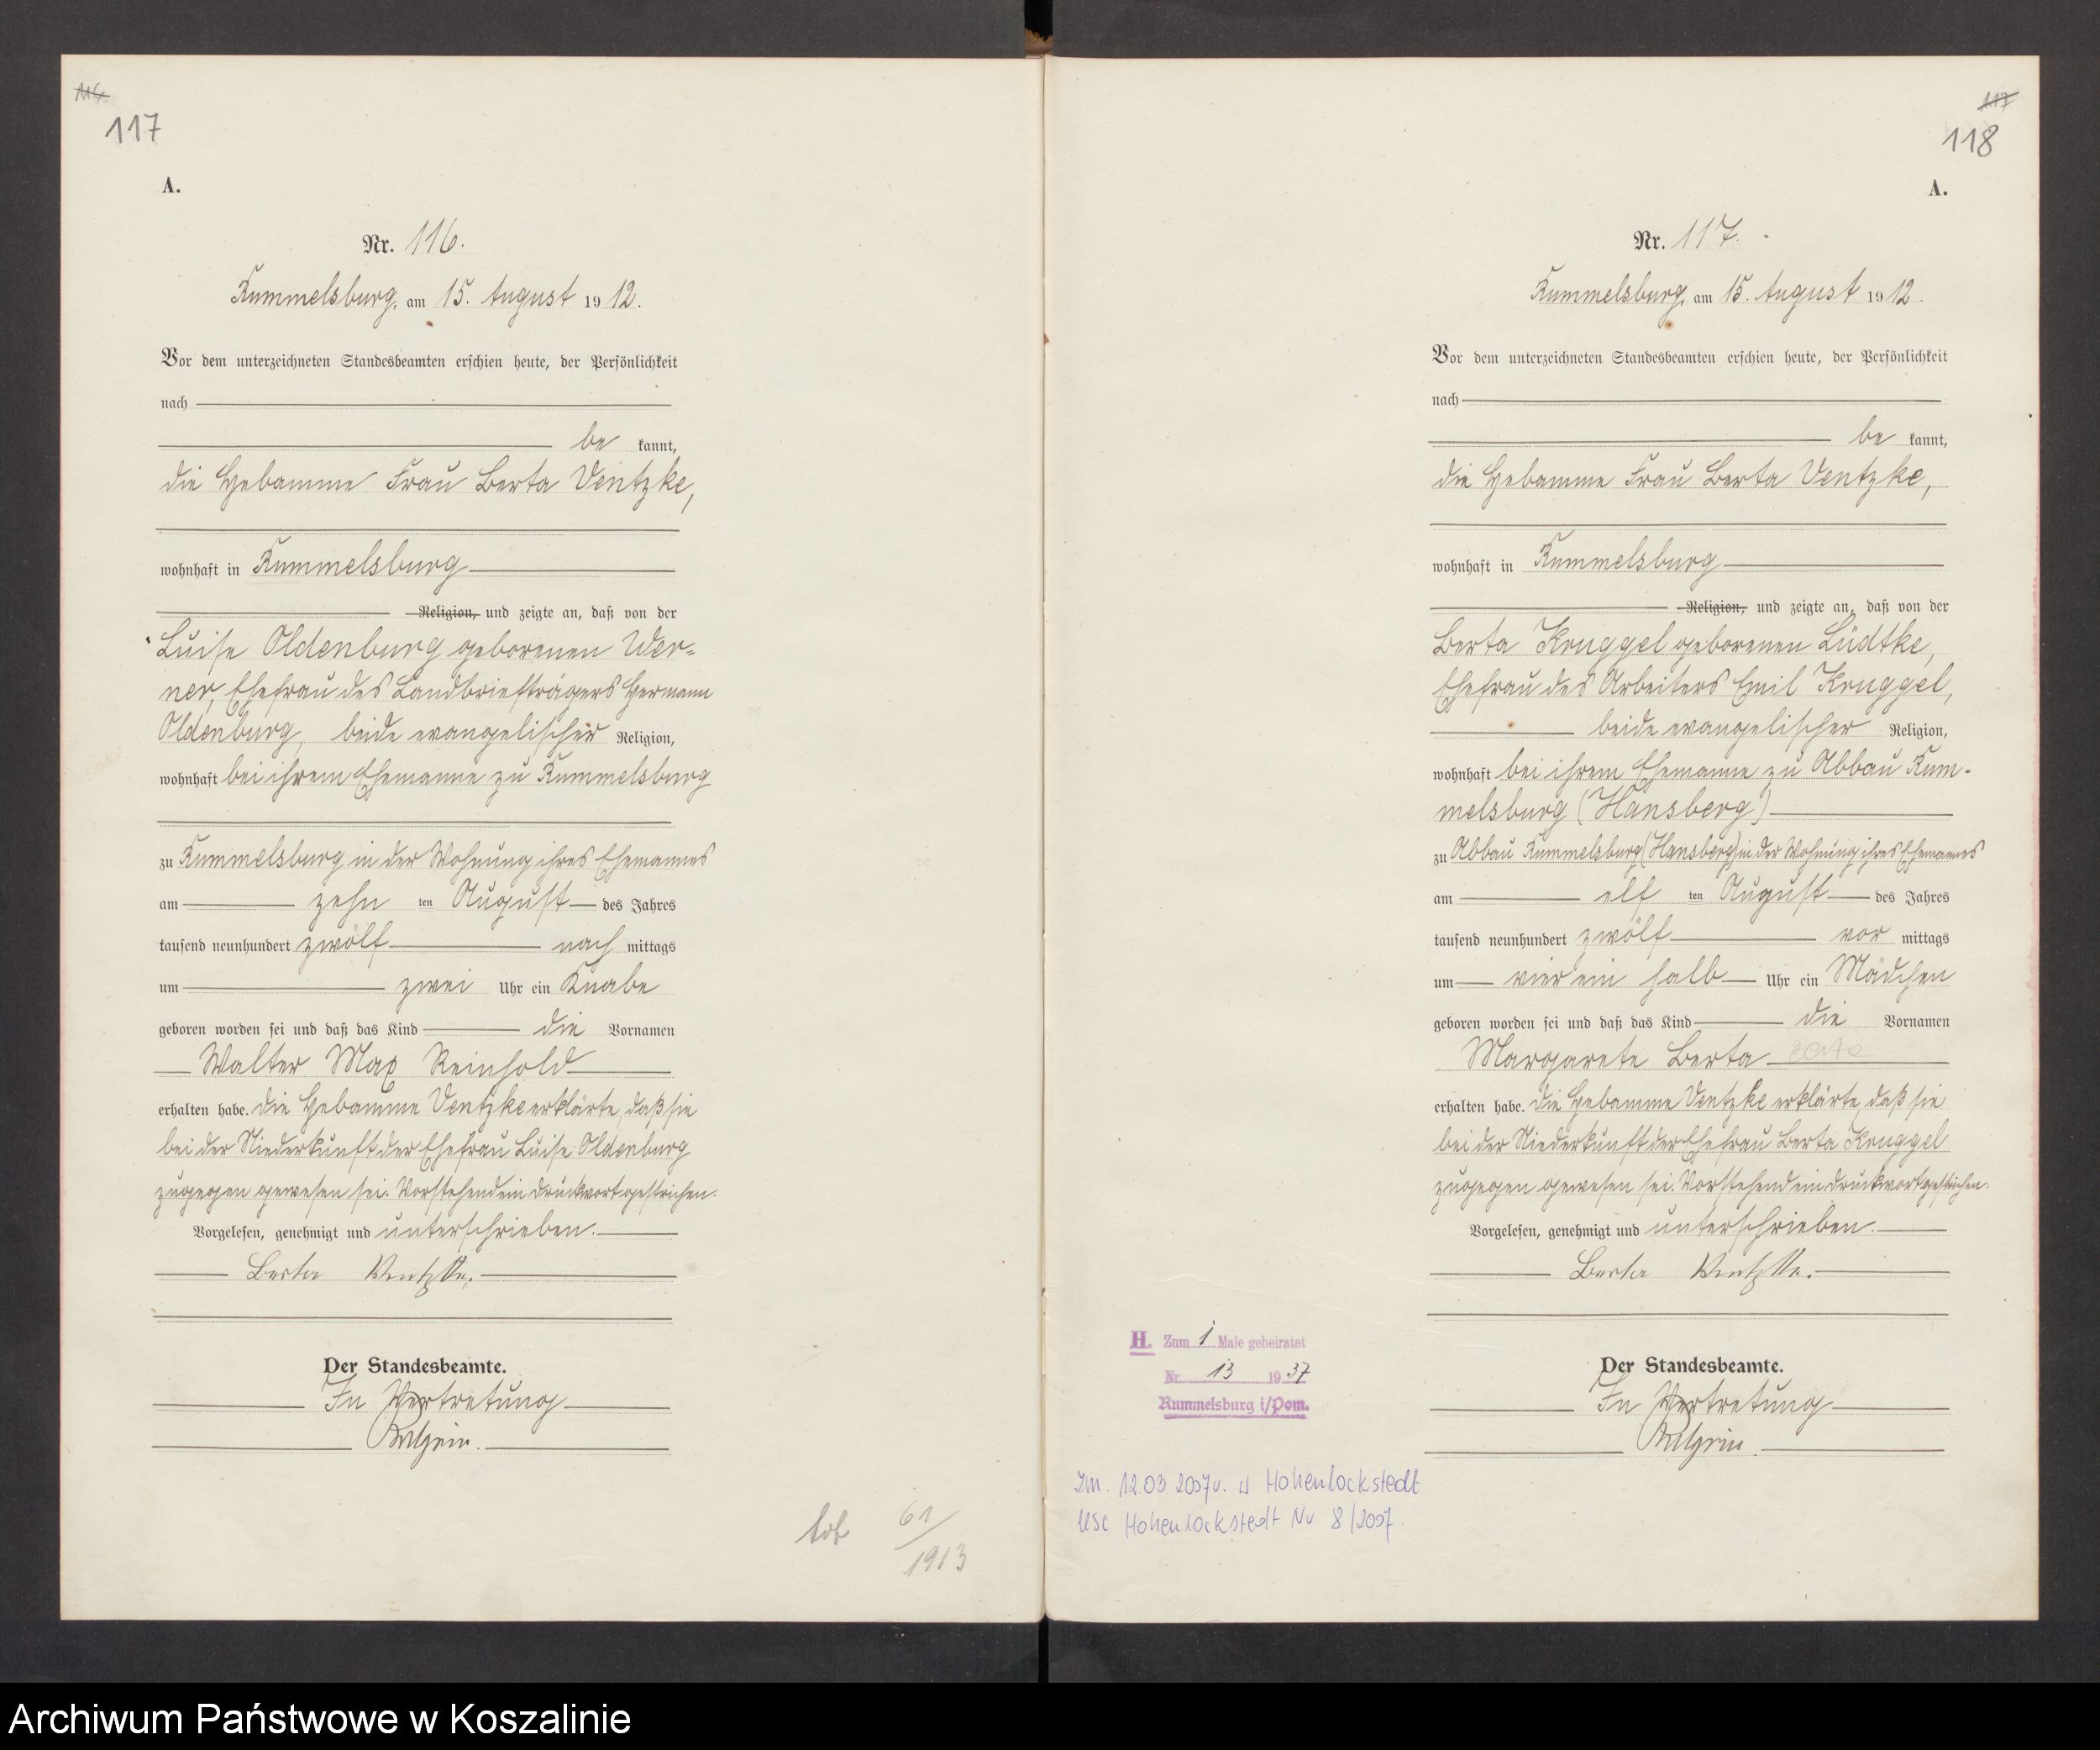 117
A.
Nr. 116.
Rummelsburg, am 15. August 1912.
Vor dem unterzeichneten Standesbeamten erschien heute, der Persönlichkeit
nach
be kannt,
die Hebamme Frau Berta Ventzke,
wohnhaft in Rummelsburg
Religion, und zeigte an, daß von der
Luise Oldenburg geborenen Wer=
ner, Ehefrau des Landbriefträgers Hermann
Oldenburg, beide evangelischer Religion,
wohnhaft bei ihrem Ehemanne zu Rummelsburg
zu Rummelsburg in der Wohnung ihres Ehemannes
am zehn ten August des Jahres
tausend neunhundert zwölf nach mittags
um zwei Uhr ein Knabe
geboren worden sei und daß das Kind die Vornamen
Walter Max Reinhold
erhalten habe. Die Hebamme Ventzke erklärte, daß sie
bei der Niederkunft der Ehefrau Luise Oldenburg
zugegen gewesen sei. Vorstehend ein Druckwort gestrichen.
Vorgelesen, genehmigt und unterschrieben.
Berta Ventzke.
Der Standesbeamte.
In Vertretung
tot 61/1913
117
118
A.
Nr. 117.
Rummelsburg, am 15. August 1912.
Vor dem unterzeichneten Standesbeamten erschien heute, der Persönlichkeit
nach
be kannt,
die Hebamme Frau Berta Ventzke,
wohnhaft in Rummelsburg
Religion, und zeigte an, daß von der
Berta Kruggel geborenen Lüdtke,
Ehefrau des Arbeiters Emil Kruggel,
beide evangelischer Religion,
wohnhaft bei ihrem Ehemanne zu Abbau Rum-
melsburg (Hansberg)
zu Abbau Rummelsburg (Hansberg) in der Wohnung ihres Ehemannes
am elf ten August des Jahres
tausend neunhundert zwölf vor mittags
um vier ein halb Uhr ein Mädchen
geboren worden sei und daß das Kind die Vornamen
Margarete Berta
erhalten habe. Die Hebamme Ventzke erklärte, daß sie
bei der Niederkunft der Ehefrau Berta Kruggel
zugegen gewesen sei. Vorstehend ein Druckwort gestrichen.
Vorgelesen, genehmigt und unterschrieben.
Berta Ventzke.
Der Standesbeamte.
In Vertretung
H. Zum 1 Male geheiratet
Nr. 13 1937
Rummelsburg i/Pom.
Zm. 12.03 2007r. w Hohenlockstedt
USC Hohenlockstedt Nr 8/2007
Archiwum Państwowe w Koszalinie